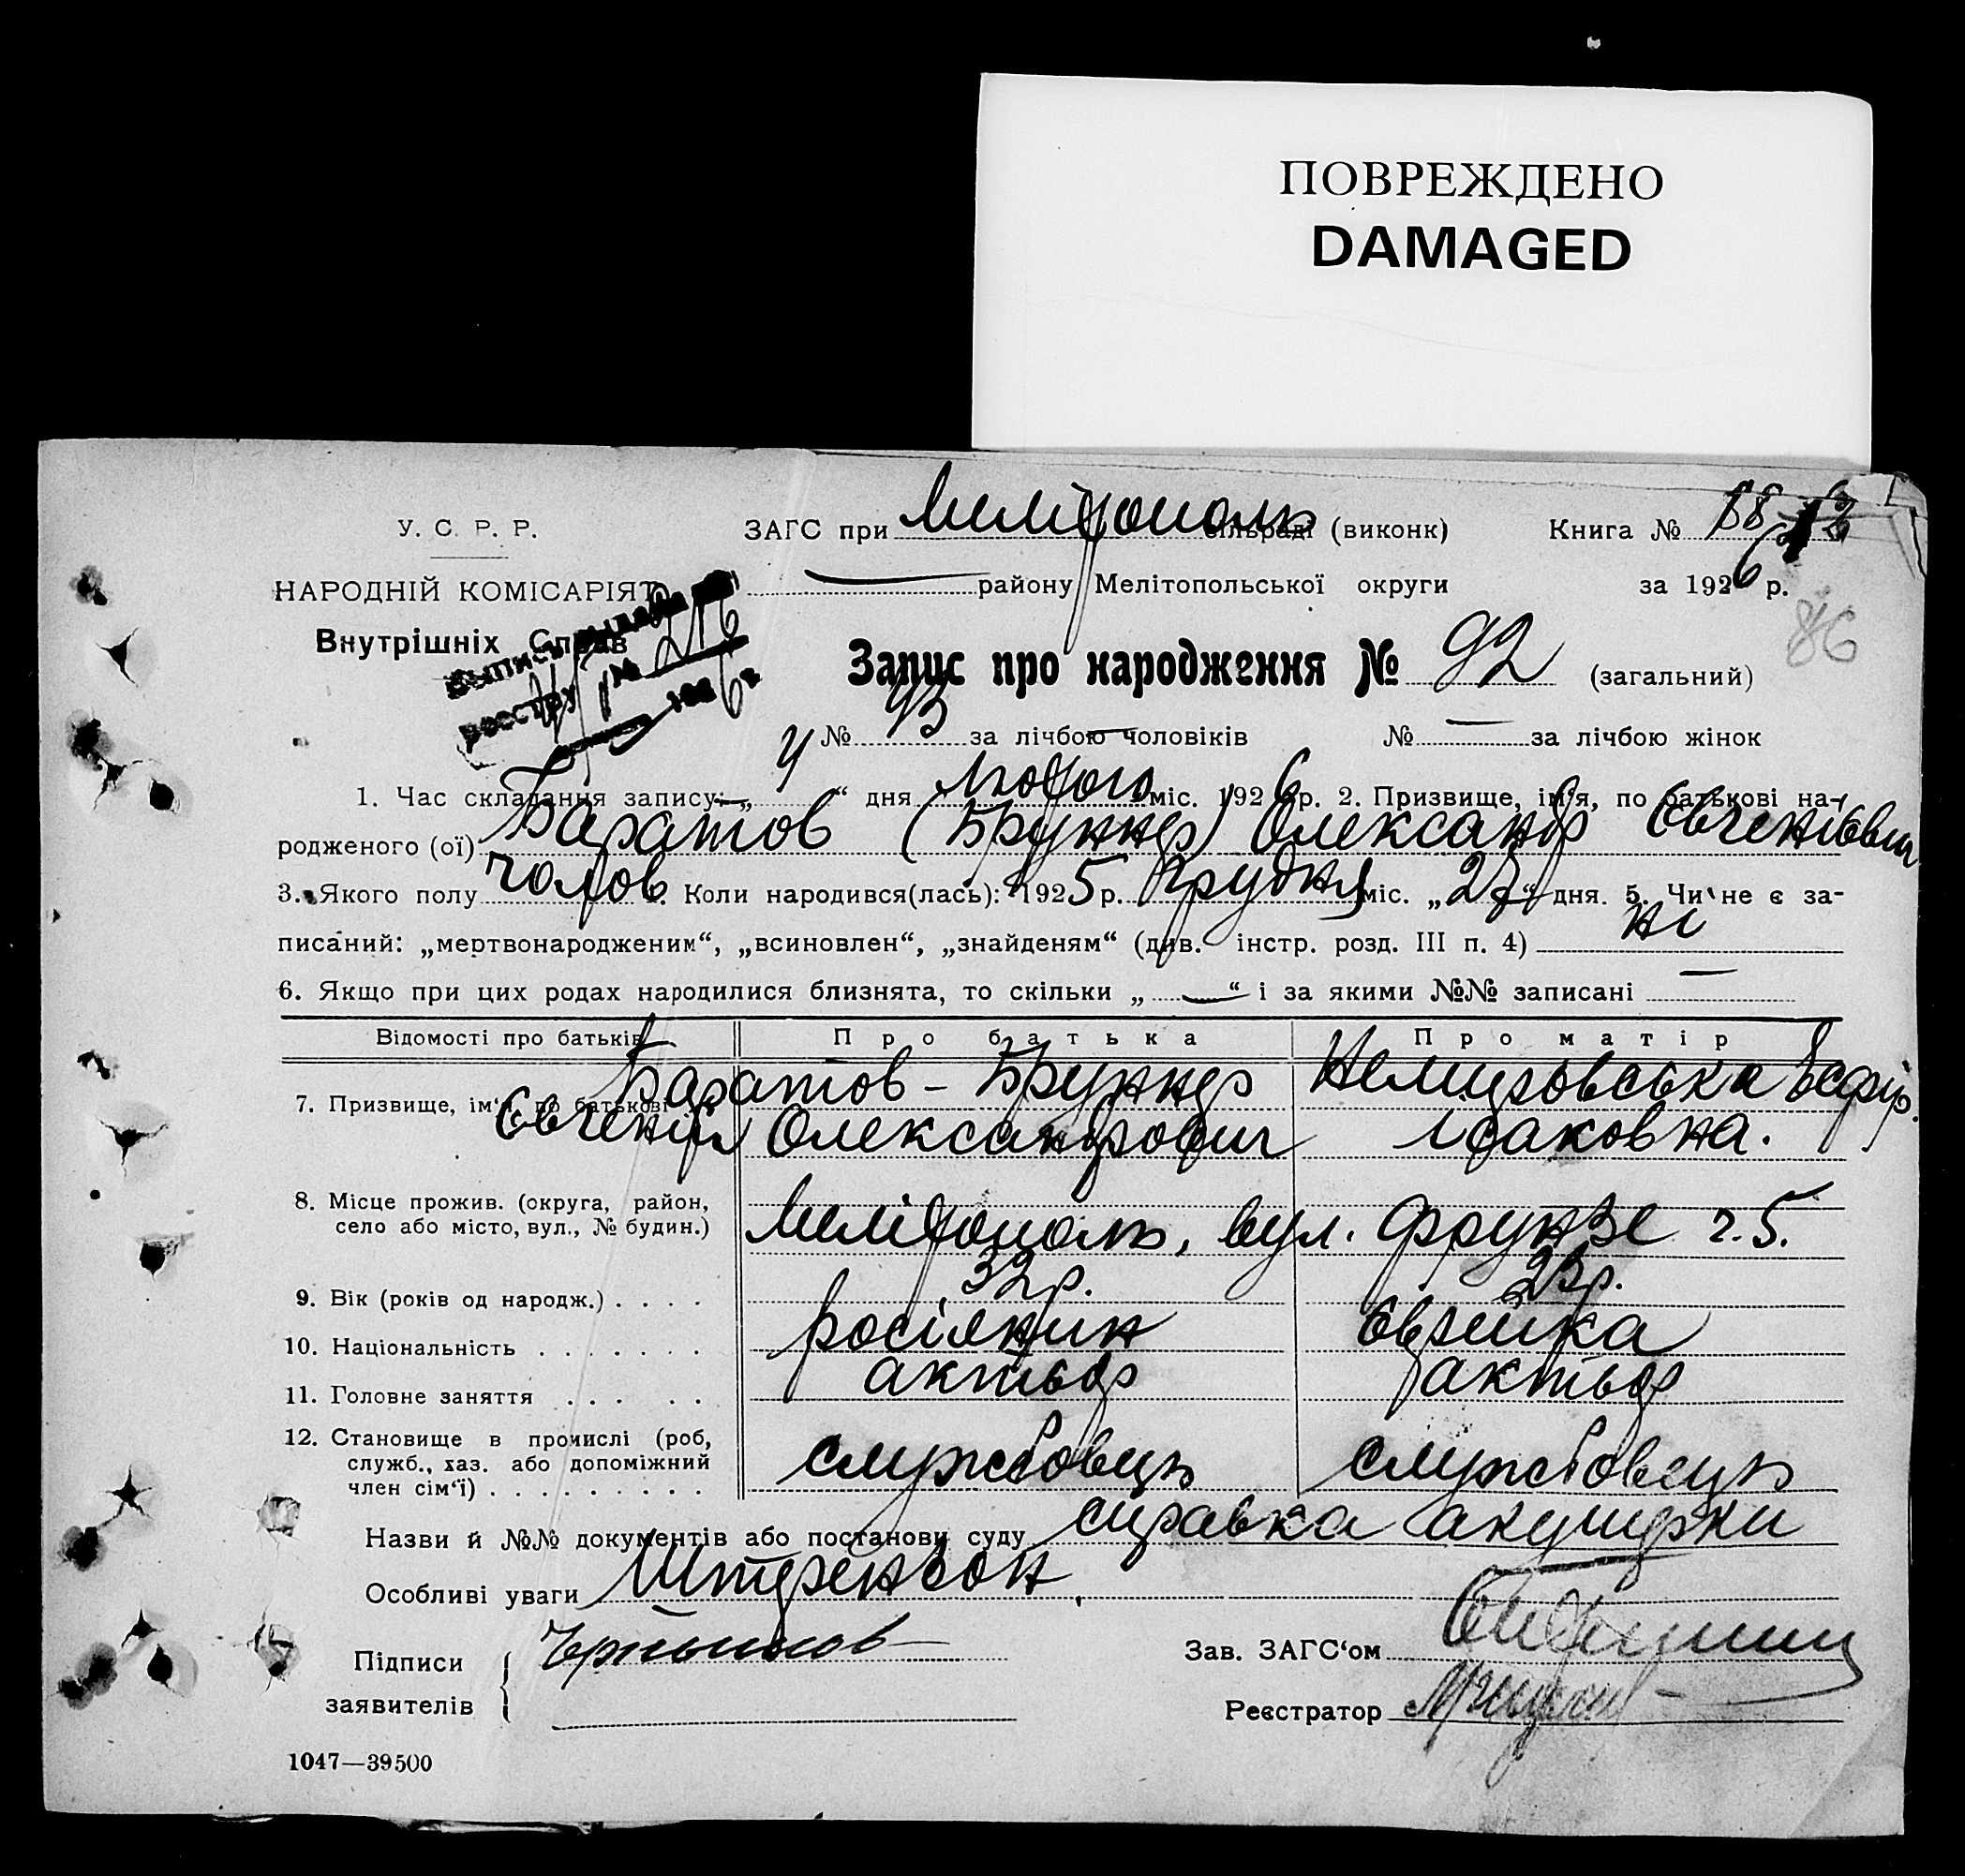 ПОВРЕЖДЕНО
DAMAGED
У. С. Р. Р.
ЗАГС при Мелітополь сільраді (виконк)
Книга № 88
НАРОДНІЙ КОМІСАРІЯТ
району Мелітопольської округи
за 1926 р.
86
Внутрішніх Справ
Выпись выдана
реестру № 216
1926 г
Запис про народження № 92 (загальний)
№ 43 за лічбою чоловіків № — за лічбою жінок
1. Час складання запису: „4“ дня лютого міс. 1926 р. 2. Призвище, ім'я, по батькові на-
родженого (ої) Баратов (Бруннер) Олександр Євгенієвич
3. Якого полу чолов. 4. Коли народився(лась): 1925 р. грудня міс. „27“ дня. 5. Чи не є за-
писаний: „мертвонародженим“, „всиновлен“, „знайденям“ (див. інстр. розд. III п. 4) ні
6. Якщо при цих родах народилися близнята, то скільки „—“ і за якими №№ записані —
Відомості про батьків Про батька Про матір
7. Призвище, ім'я, по батькові Баратов - Бруннер Немировська Есфір.
Євгеній Олександрович Ісаковна.
8. Місце прожив. (округа, район,
село або місто, вул., № будин.) Мелітополь, вул. Фрунзе ч. 5.
9. Вік (років од народж.) . . . . 32 р. 23 р.
10. Національність . . . . . . . росіянин єврейка
11. Головне заняття . . . . . актьор актьор
12. Становище в промислі (роб,
служб., хаз. або допоміжний
член сім'ї) . . . . . . . . . службовець службовець
Назви й №№ документів або постанови суду справка акушерки
Особливі уваги Штерензон
Підписи
заявителів
Зав. ЗАГС'ом
Реєстратор
1047—39500